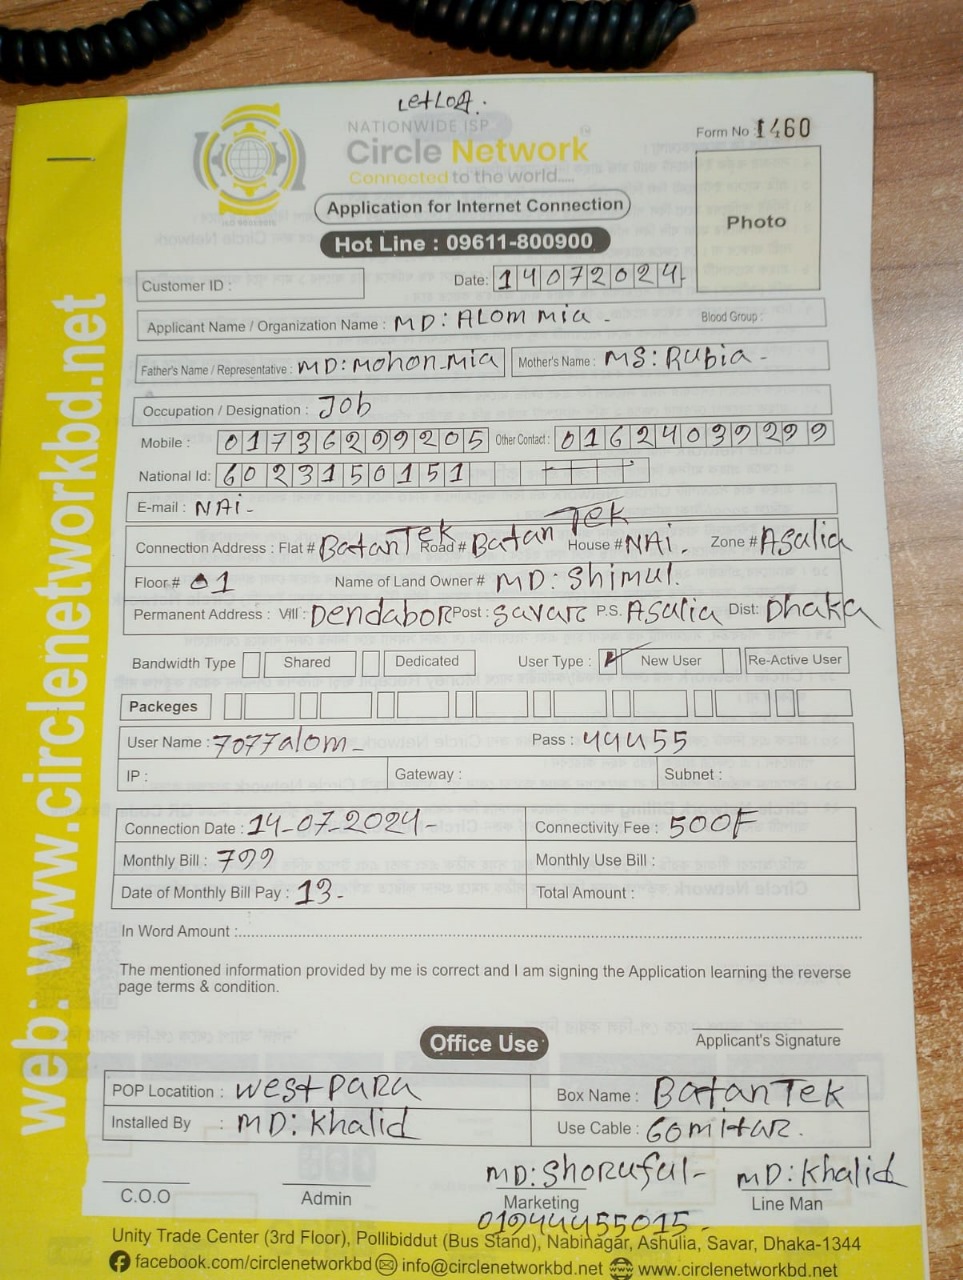 NATIONWIDE ISP
Circle Network
Connected to the world.....
Form No : 1460
Photo
Application for Internet Connection
Hot Line : 09611-800900
Customer ID :
Date: 14072024
Applicant Name / Organization Name : MD: ALOM MIA - Blood Group :
Father's Name / Representative : MD: MOHON MIA Mother's Name : MS: Rubia -
Occupation / Designation : JOb
Mobile : 01736299205 Other Contact : 01624039299
National Id: 6023150151
E-mail : NAi -
Connection Address : Flat # BatanTek Road # Batan Tek House # NAi. Zone # Asulia
Floor # 01 Name of Land Owner # MD: Shimul.
Permanent Address : Vill : Dendabor Post : Savar P.S. Asulia Dist: Dhaka
Bandwidth Type Shared Dedicated User Type : New User Re-Active User
Packeges
User Name : 7077alom - Pass : 44455
IP : Gateway : Subnet :
Connection Date : 14-07-2024 - Connectivity Fee : 500F
Monthly Bill : 799 Monthly Use Bill :
Date of Monthly Bill Pay : 13 - Total Amount :
In Word Amount :
The mentioned information provided by me is correct and I am signing the Application learning the reverse
page terms & condition.
Applicant's Signature
Office Use
POP Locatition : westpara Box Name : BatanTek
Installed By : MD: Khalid Use Cable : 60mitar.
MD: Shoruful - MD: Khalid
C.O.O Admin Marketing Line Man
01944455015 -
Unity Trade Center (3rd Floor), Pollibiddut (Bus Stand), Nabinagar, Ashulia, Savar, Dhaka-1344
facebook.com/circlenetworkbd info@circlenetworkbd.net www.circlenetworkbd.net
web: www.circlenetworkbd.net